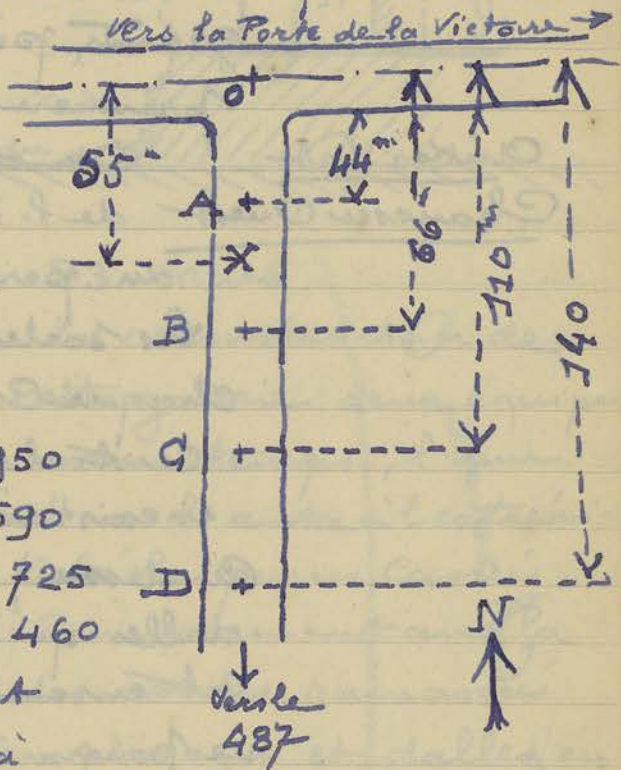 Vers la Porte de la Victoire
O
55 m
44 m
A
66 m
110 m
140
B
950
C
590
725
D
460
N
A
à
Vers le
487